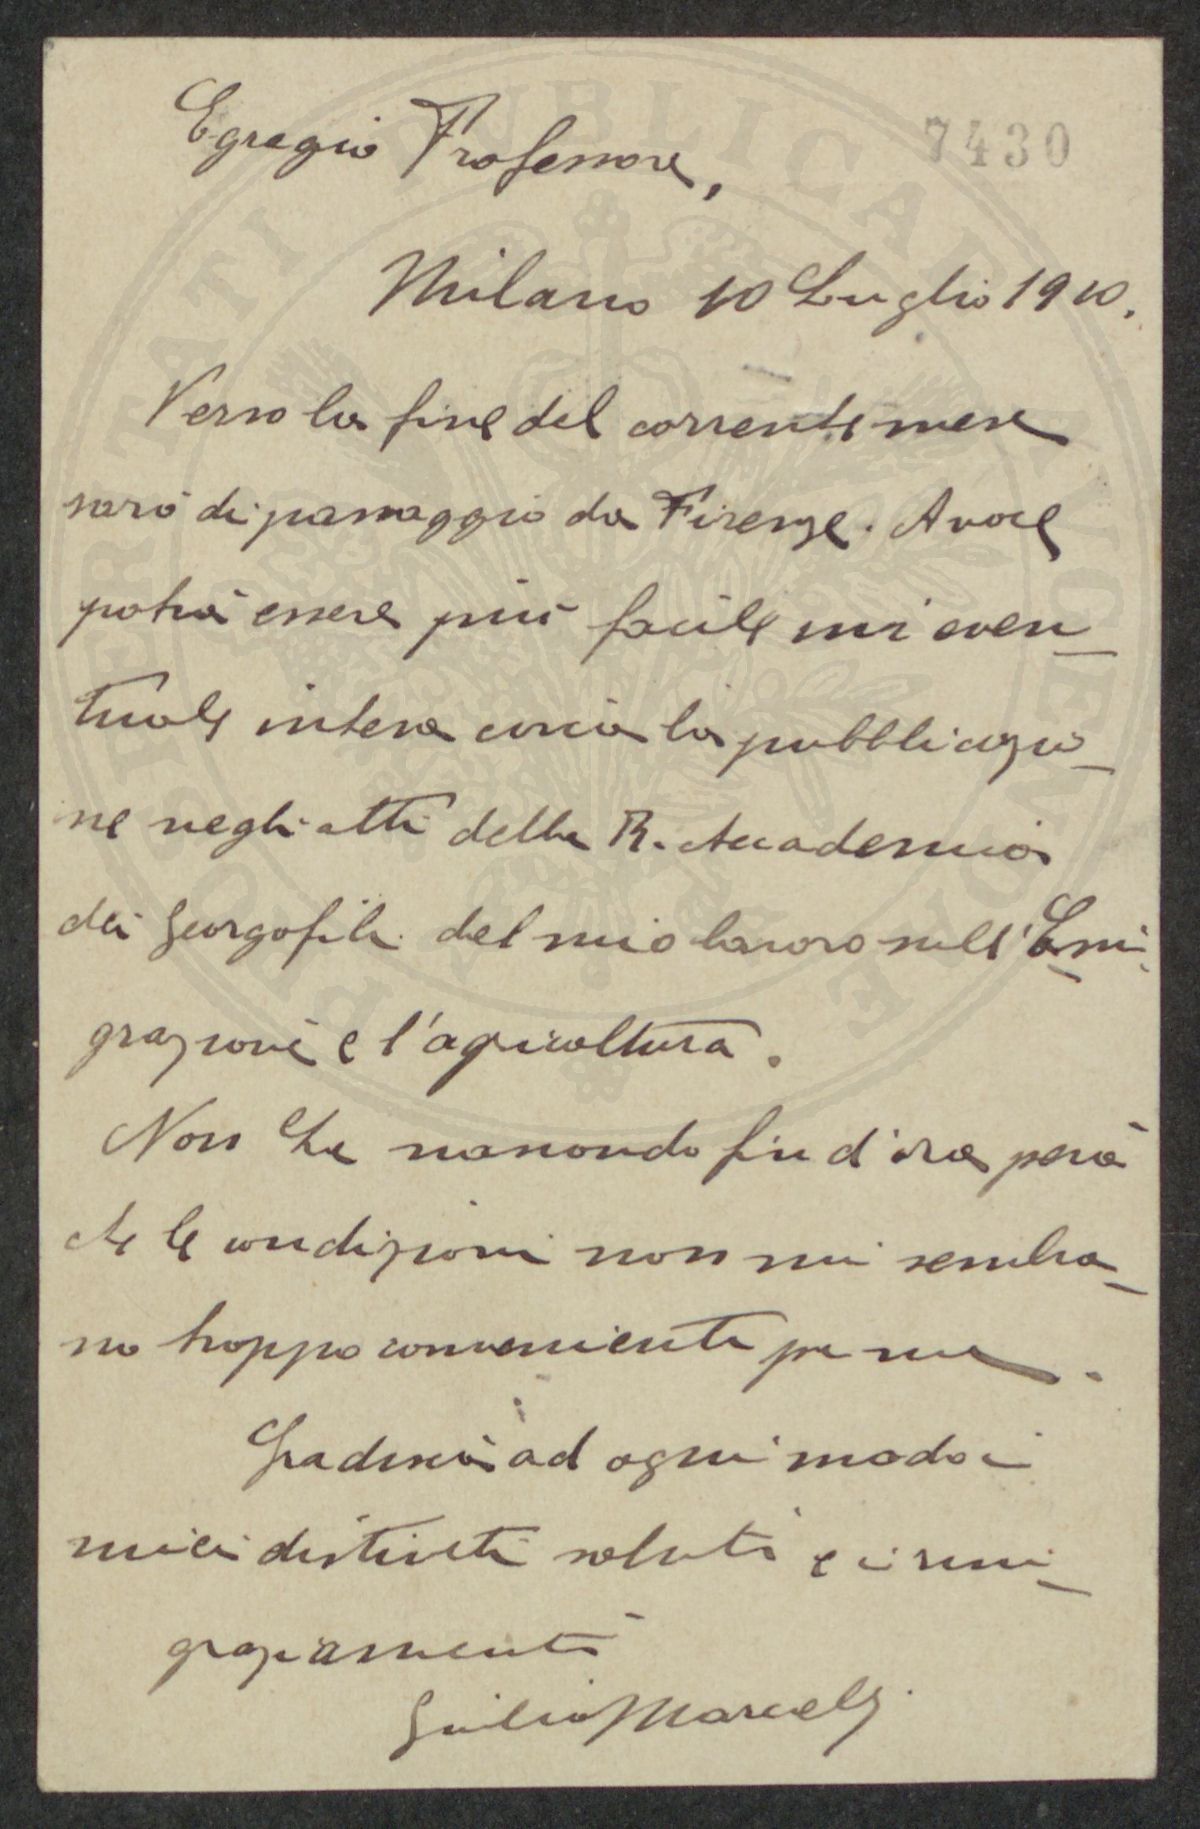 7430
Egregio Professore,
Milano 10 Luglio 1910.
Verso la fine del corrente mese
sarò di passaggio da Firenze. A voce
potrà essere più facile un'even-
tuale intesa circa la pubblicazio-
ne negli atti della R. Accademia
dei Georgofili del mio lavoro sull'Emi-
grazione e l'agricoltura.
Non Le nascondo fin d'ora però
che le condizioni non mi sembra-
no troppo convenienti per me.
Gradisca ad ogni modo i
miei distinti saluti e i rin-
graziamenti
Giulio Marcelli
PROPERTATI PUBLICAE NOVOEMONAE